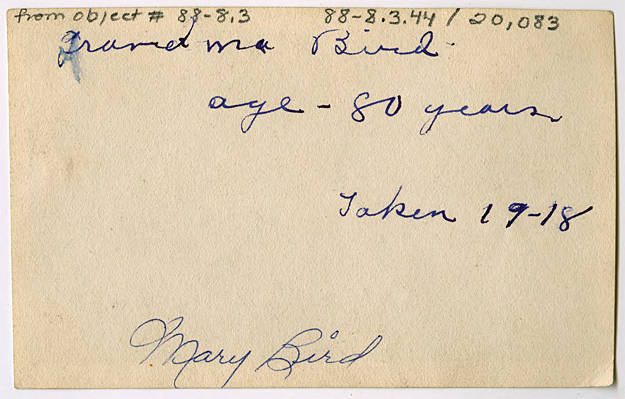 from object # 88-8.3 88-8.3.44 / 20,083
Grandma Bird
age - 80 years
Taken 19-18
Mary Bird